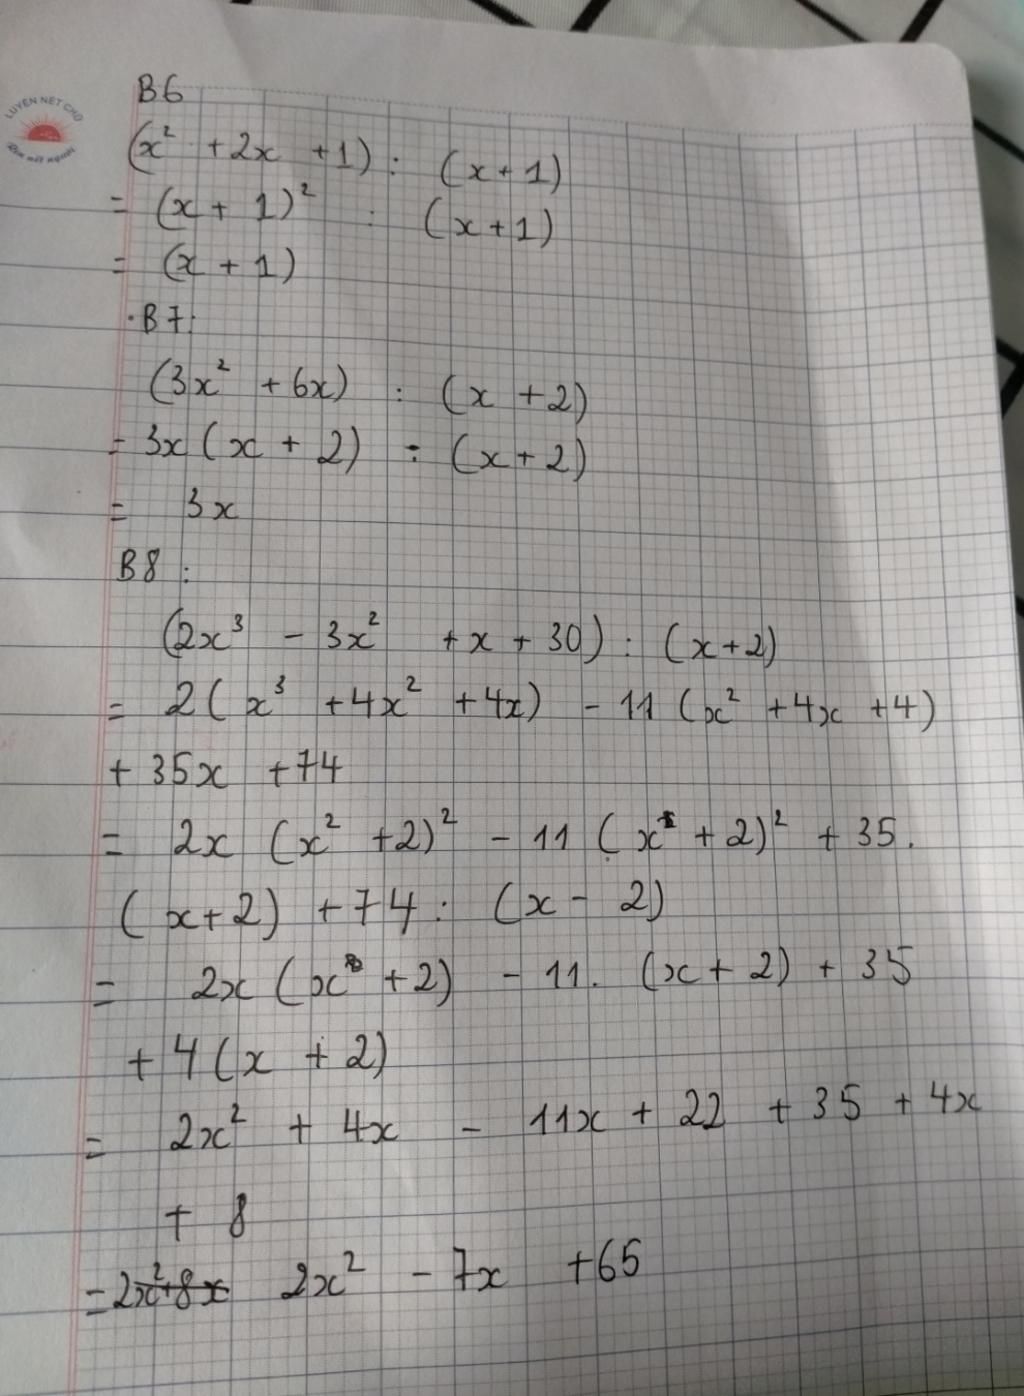 LUYỆN NÉT CHỮ
Rèn nết người
B6
(x² + 2x + 1) : (x + 1)
= (x + 1)² : (x + 1)
= (x + 1)
·B7:
(3x² + 6x) : (x + 2)
= 3x (x + 2) : (x + 2)
= 3x
B8 :
(2x³ - 3x² + x + 30) : (x + 2)
= 2 (x³ + 4x² + 4x) - 11 (x² + 4x + 4)
+ 35x + 74
= 2x (x² + 2)² - 11 (x + 2)² + 35.
(x + 2) + 74 : (x - 2)
= 2x (x + 2) - 11. (x + 2) + 35
+ 4 (x + 2)
= 2x² + 4x - 11x + 22 + 35 + 4x
+ 8
= 2x² + 8x 2x² - 7x + 65